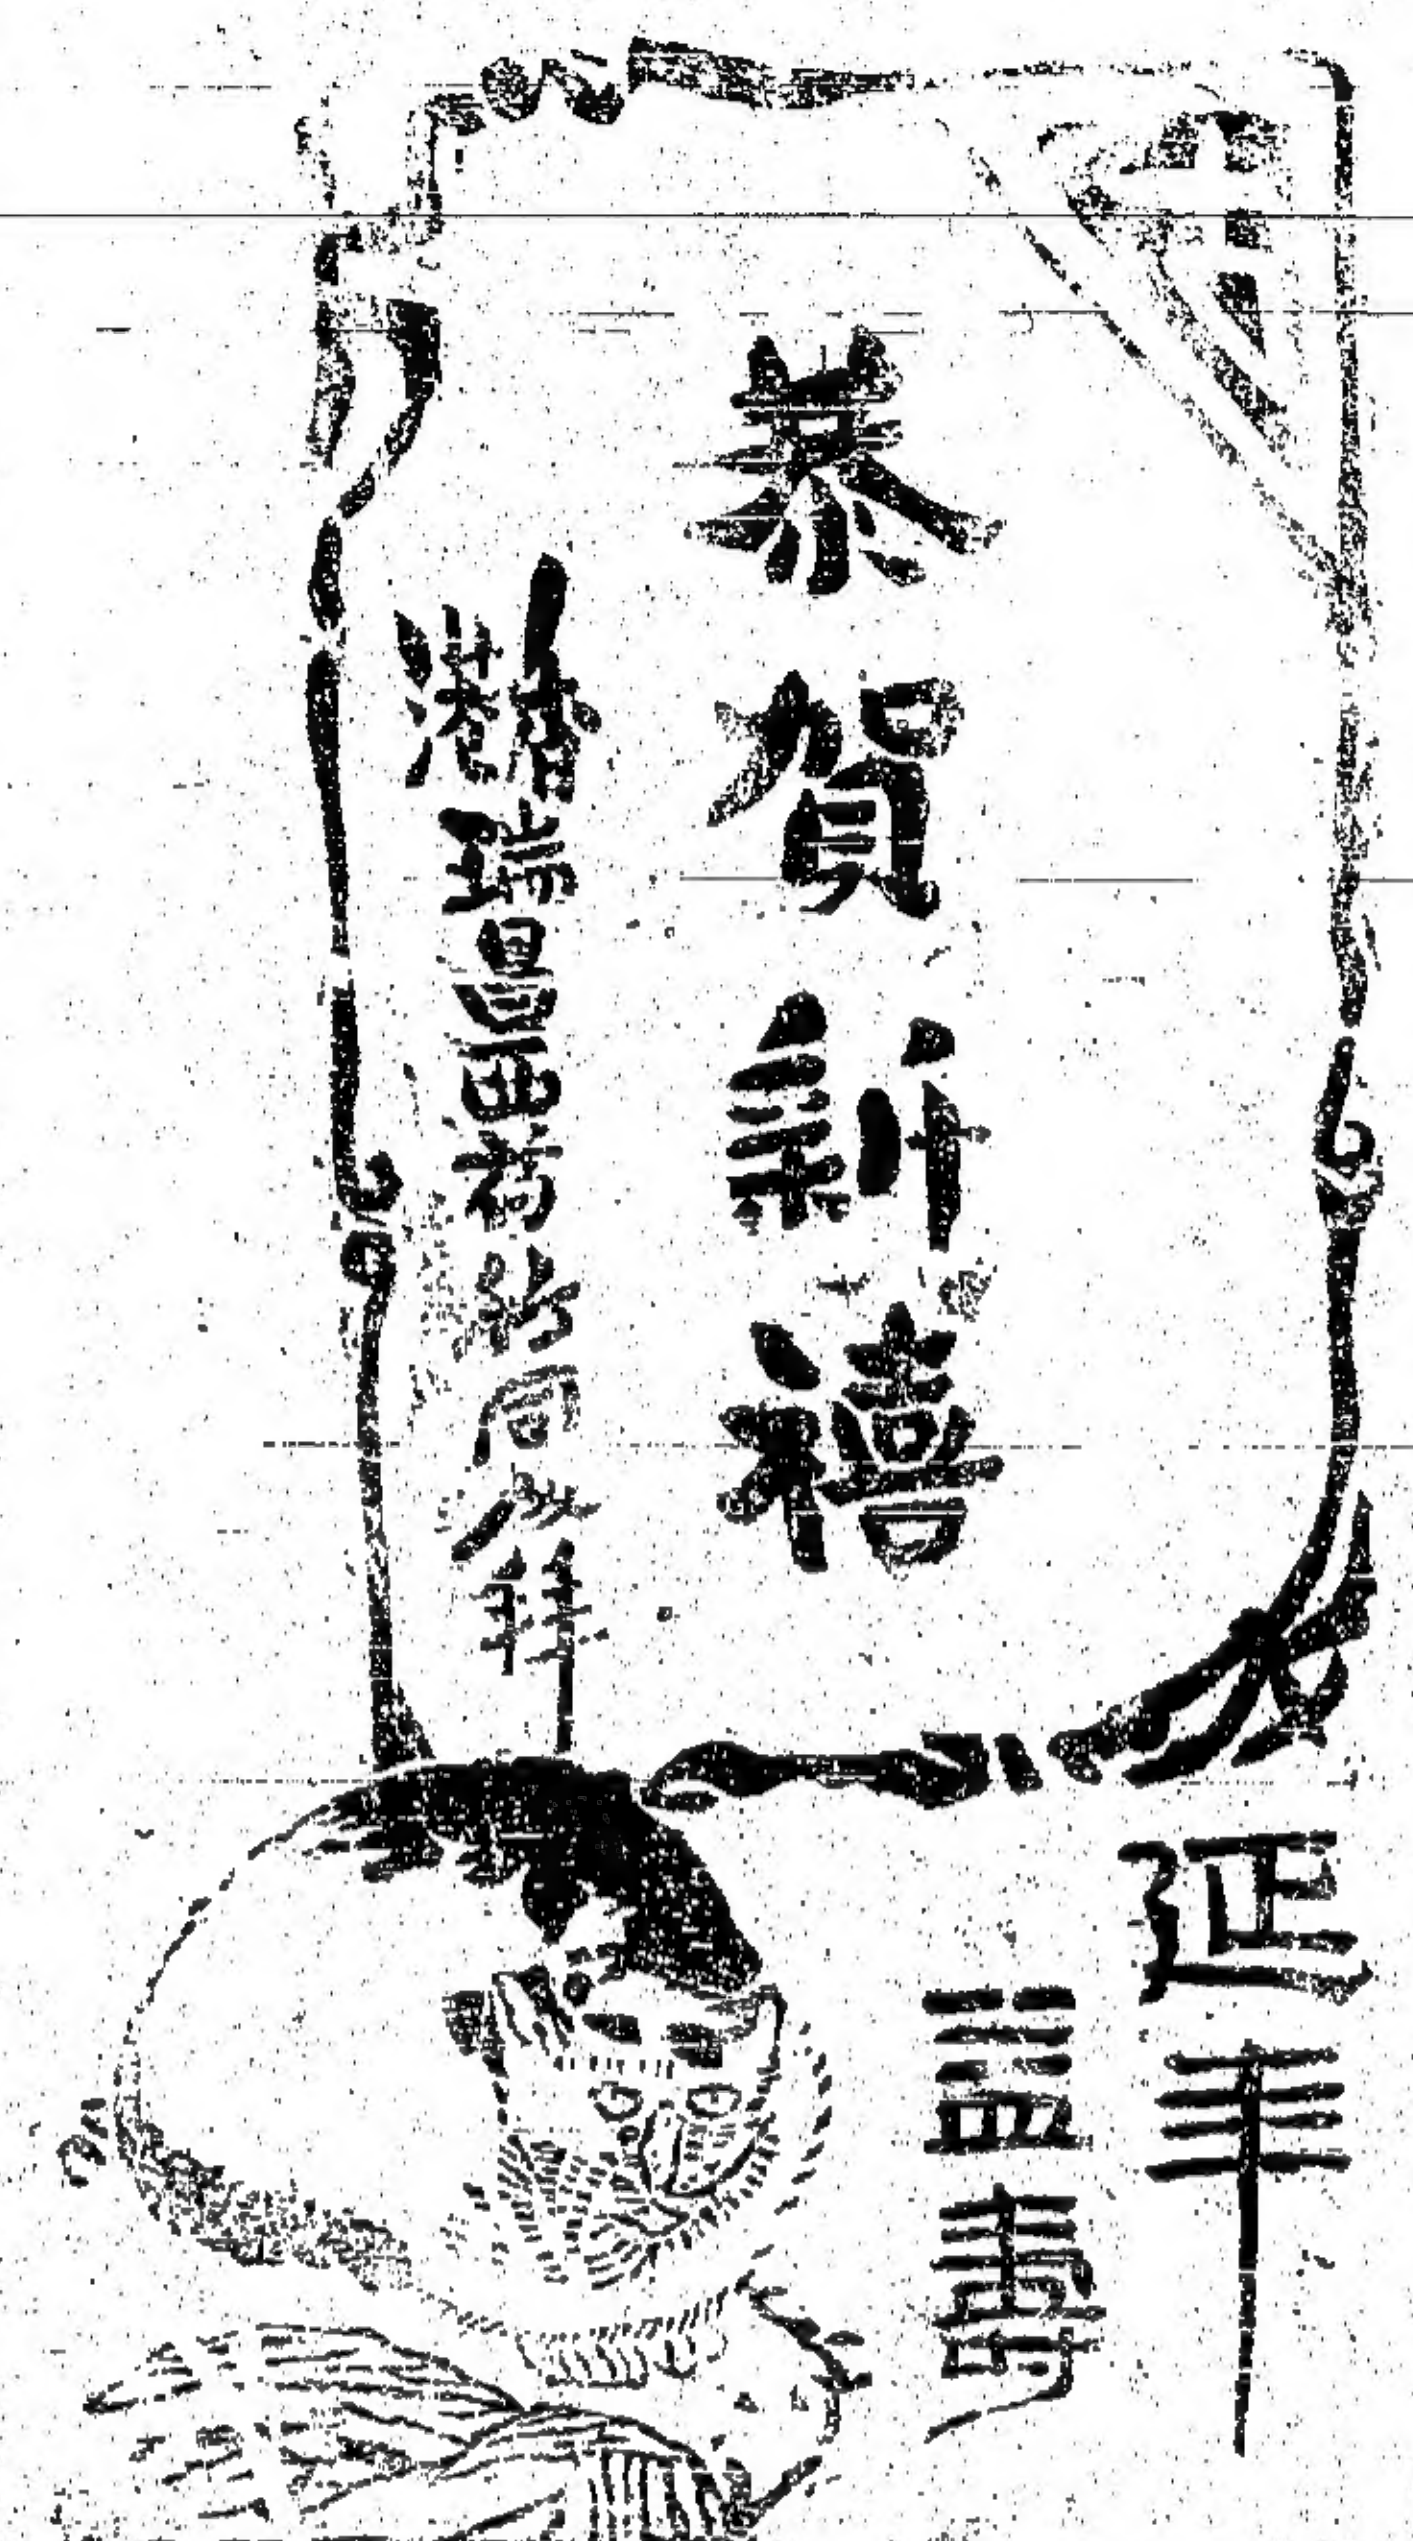 恭賀新禧
香港瑞昌西葯行同人拜
延年
益壽